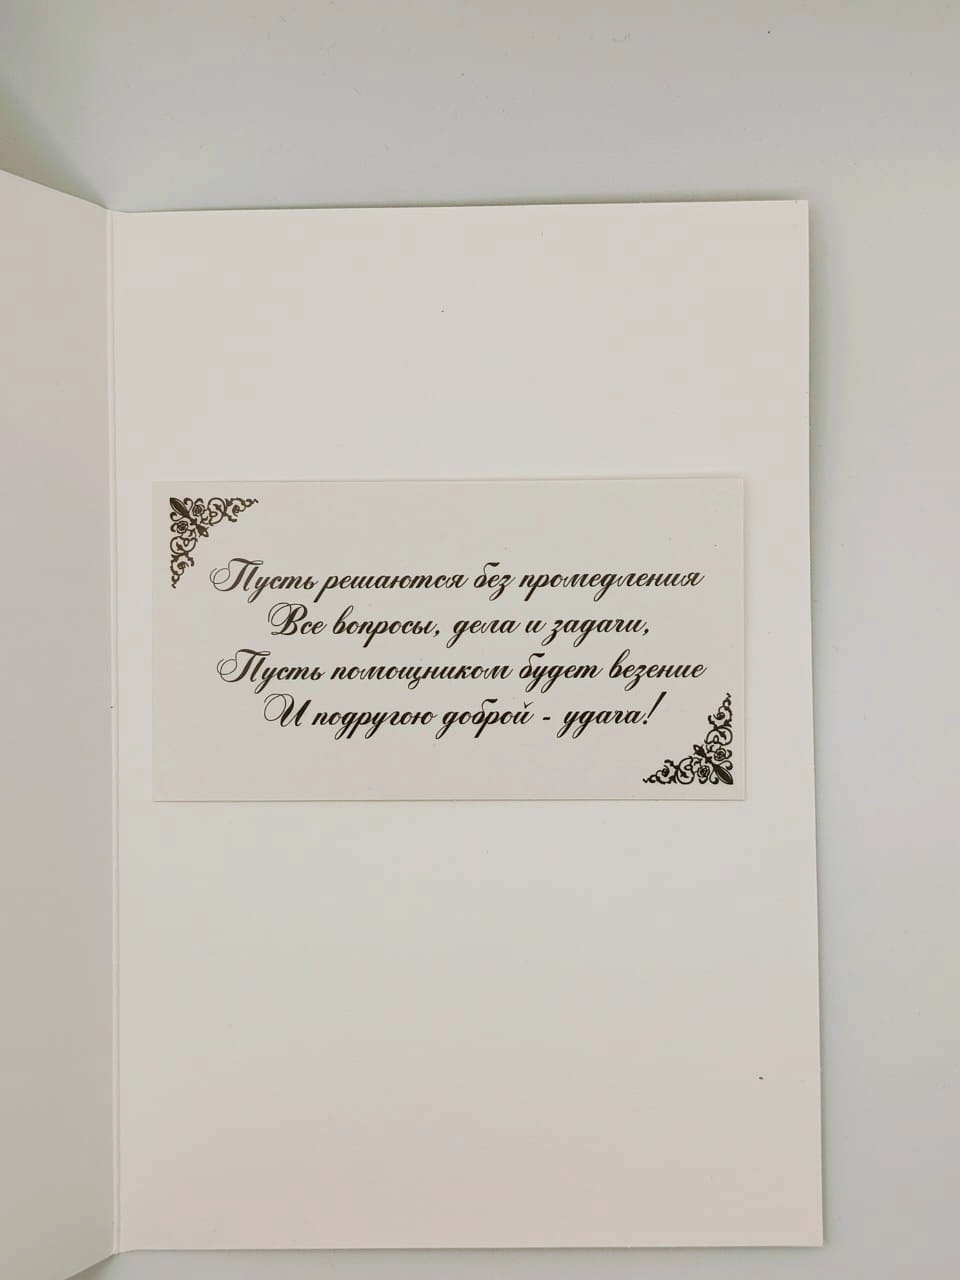 Пусть решаются без промедления
Все вопросы, дела и задачи,
Пусть помощником будет везение
И подругою доброй - удача!